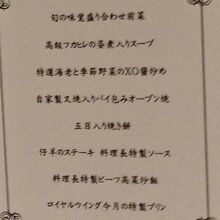 旬の味覚盛り合わせ前菜
高級フカヒレの姿煮入りスープ
特選海老と季節野菜のXO醬炒め
自家製叉焼入りパイ包みオーブン焼
五目入り焼き餅
仔羊のステーキ 料理長特製ソース
料理長特製ビーフ高菜炒飯
ロイヤルウイング今月の特製プリン